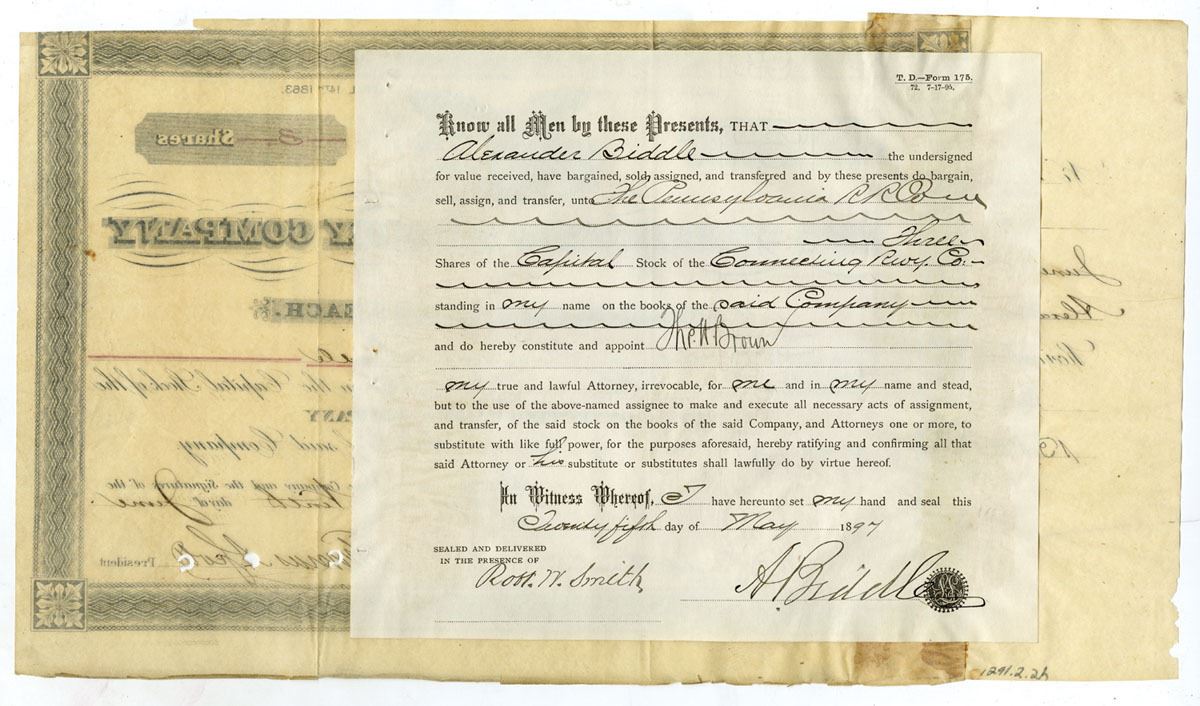 T. D.—Form 175.
72. 7-17-95.
Know all Men by these Presents, THAT
Alexander Biddle the undersigned
for value received, have bargained, sold, assigned, and transferred and by these presents do bargain,
sell, assign, and transfer, unto The Pennsylvania R R Co
Three
Shares of the Capital Stock of the Connecting Rwy. Co.
standing in my name on the books of the said Company
and do hereby constitute and appoint Thos. H Brown
my true and lawful Attorney, irrevocable, for me and in my name and stead,
but to the use of the above-named assignee to make and execute all necessary acts of assignment,
and transfer, of the said stock on the books of the said Company, and Attorneys one or more, to
substitute with like full power, for the purposes aforesaid, hereby ratifying and confirming all that
said Attorney or his substitute or substitutes shall lawfully do by virtue hereof.
In Witness Whereof, I have hereunto set my hand and seal this
Twenty fifth day of May 1897
SEALED AND DELIVERED
IN THE PRESENCE OF
Robt. W. Smith
A Biddle
14TH 1863.
Shares
COMPANY
EACH.
in the Capital Stock of the
said Company
Company and the Signatures of the
Tenth day of June
President
June
1291.2.2b